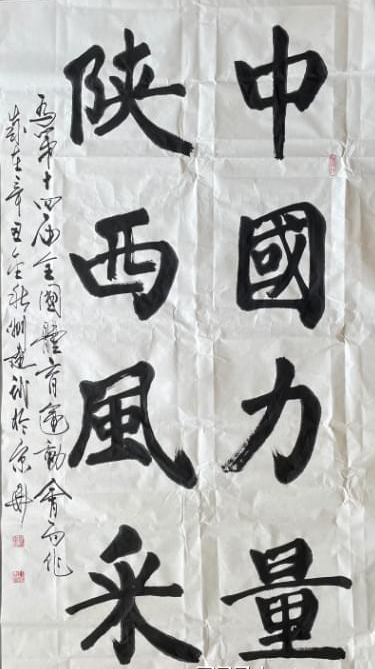 中國力量
陕西風采
为第十四届全國體育運動會而作
歲在辛丑金秋